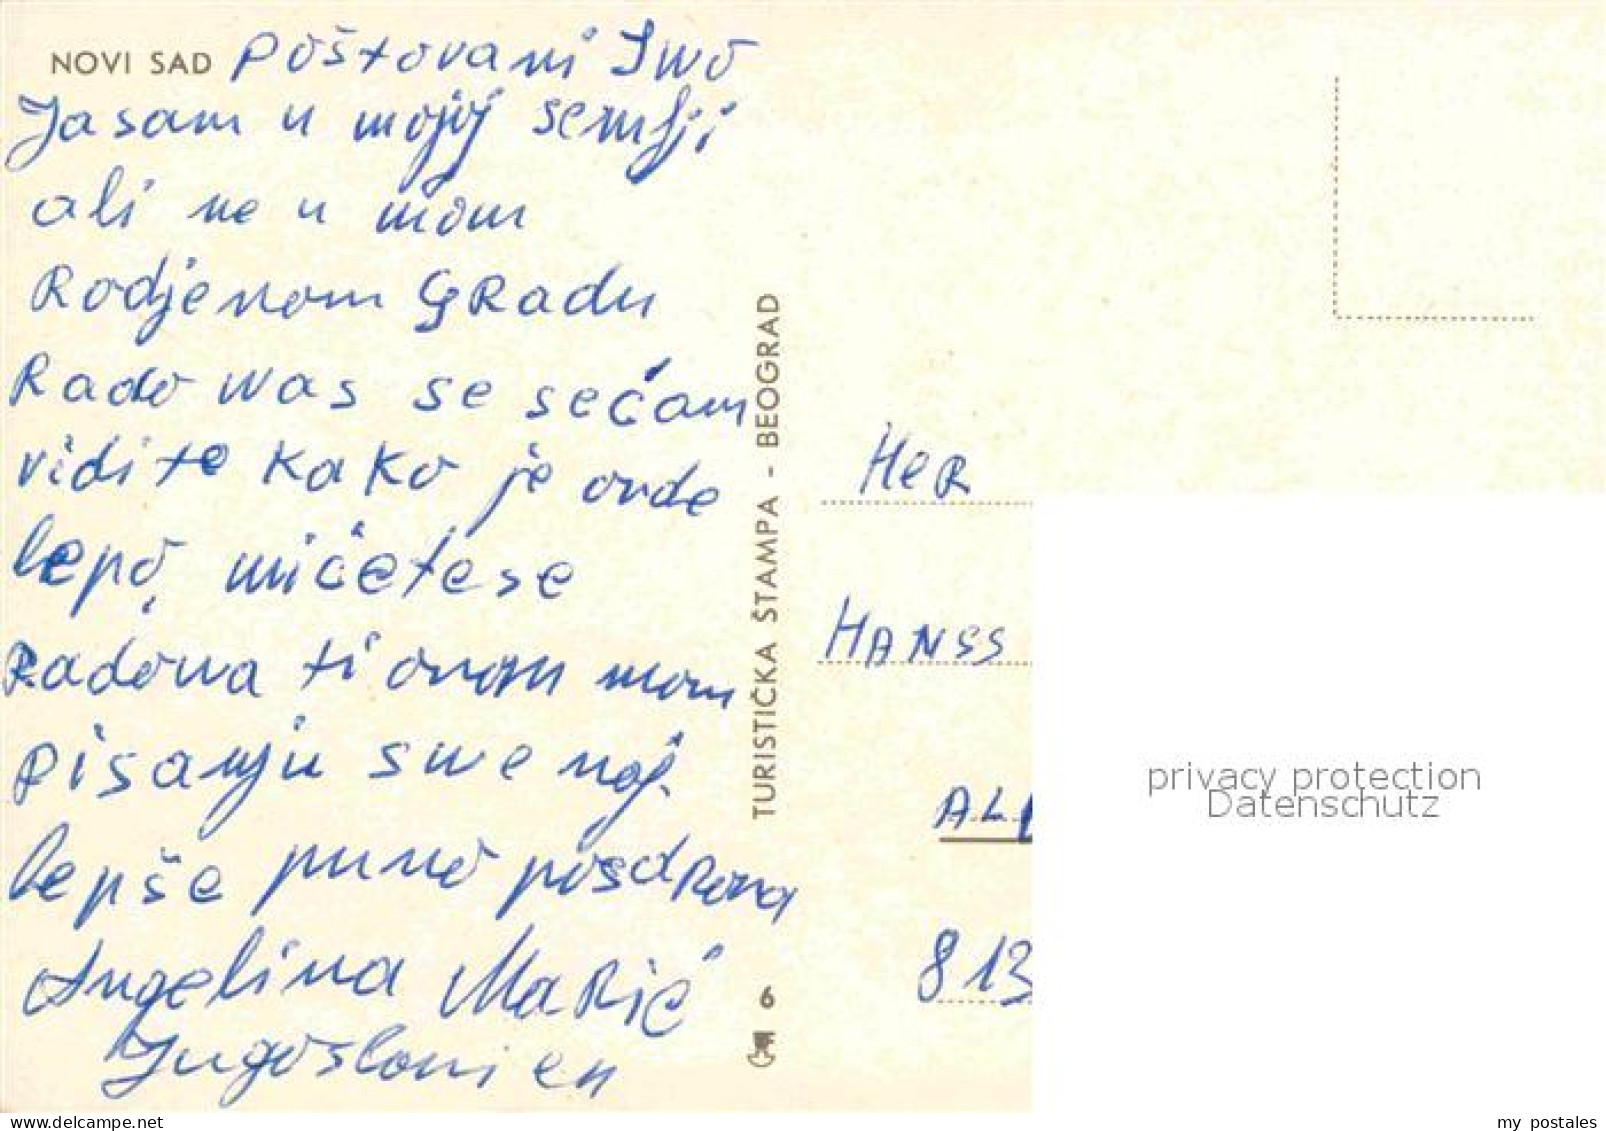 NOVI SAD Poštovani Iwo
Ja sam u mojoj semlji
ali ne u mom
Rodjenom GRadu
Rado was se sećam
vidite kako je ovde
lepo, mićete se
Radowa ti ovom mom
pisanju swe naj.
lepše puno posdRova
Angelina MaRić
Jugoslowien
TURISTIČKA ŠTAMPA - BEOGRAD
6
HeR
HANSS
AL
813
privacy protection
Datenschutz
delcampe.net
my_postales